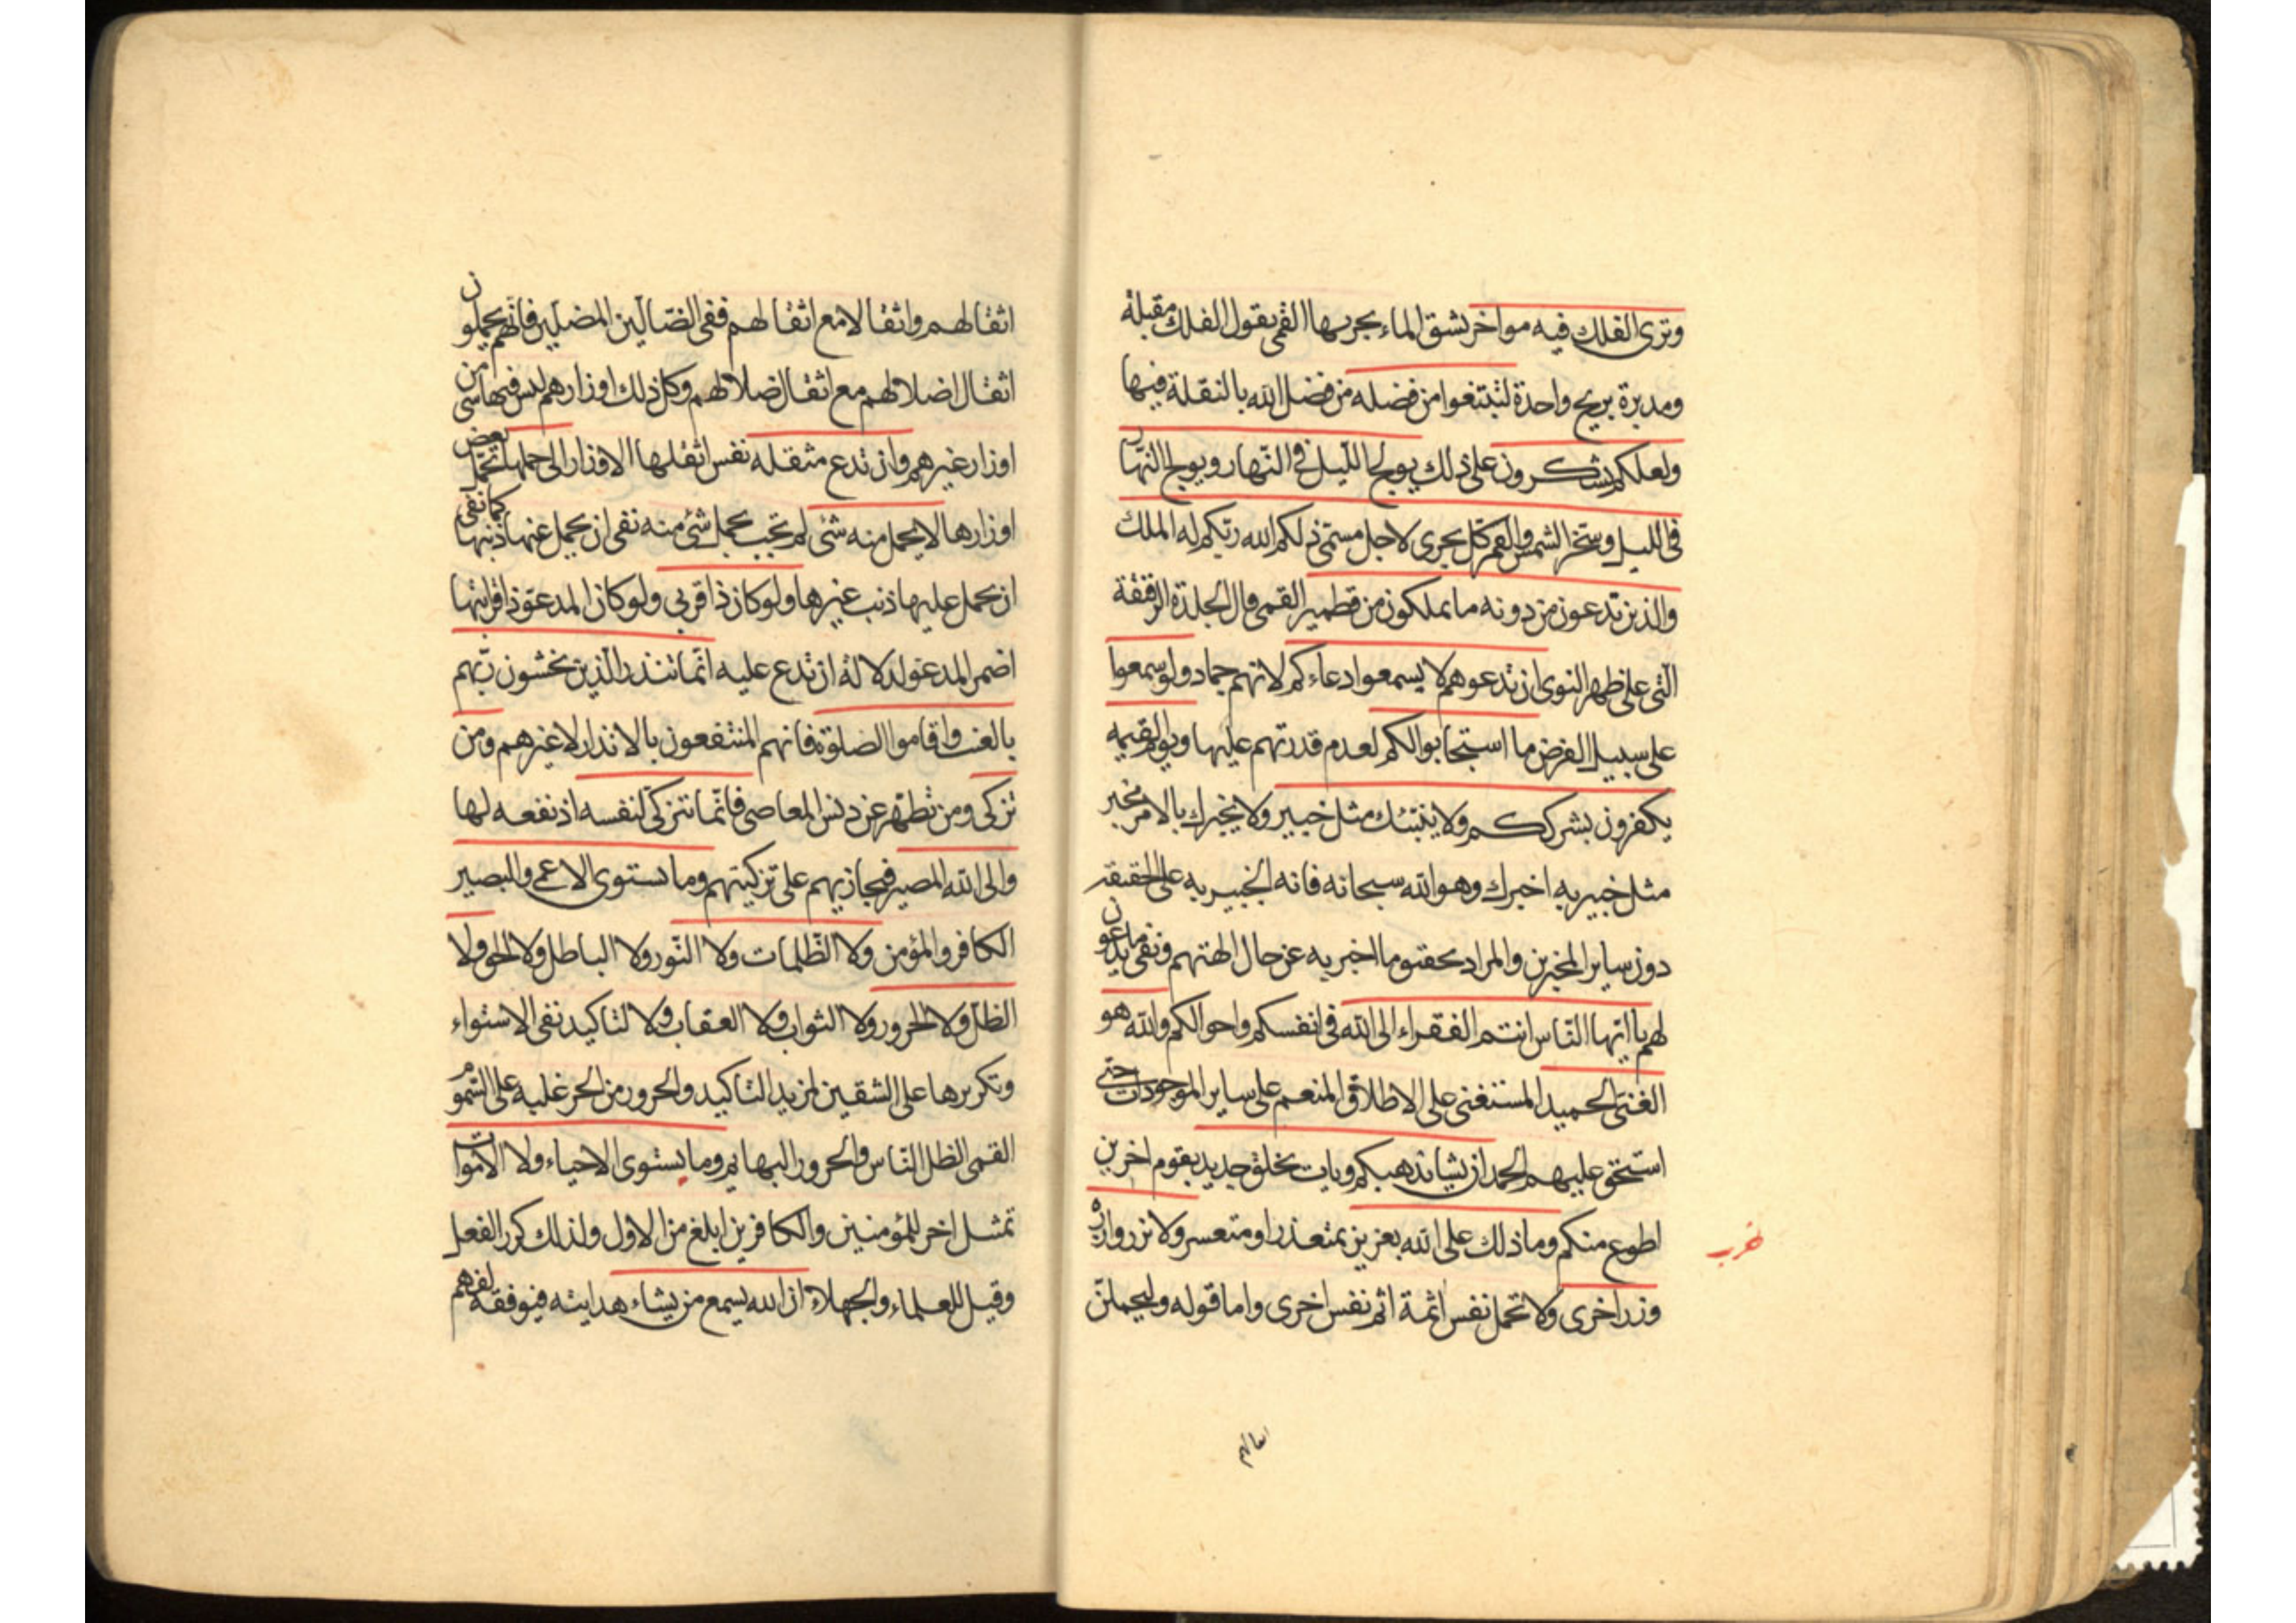 وترى الفلك فيه مواخر تشق الماء بجريها القمى يقول الفلك مقبلة
ومدبرة بريح واحدة لتبتغوا من فضله من فضل الله بالنقلة فيها
ولعلكم تشكرون على ذلك يولج الليل فى النهار ويولج النهار
فى الليل وسخر الشمس والقمر كل يجرى لاجل مسمى ذلكم الله ربكم له الملك
والذين تدعون من دونه ما يملكون من قطمير القمى قال الجلدة الرقيقة
التى على ظهر النوى ان تدعوهم لا يسمعوا دعاءكم لانهم جماد ولو سمعوا
على سبيل الفرض ما استجابوا لكم لعدم قدرتهم عليها ويوم القيمه
يكفرون بشرككم ولا ينبئك مثل خبير ولا يخبرك بالامر مخبر
مثل خبير به اخبرك وهو الله سبحانه فانه الخبير به على الحقيقه
دون ساير المخبرين والمراد تحقيق ما اخبر به عن حال الهتهم ونفى ما يدعون
لهم يا ايها الناس انتم الفقراء الى الله فى انفسكم واحوالكم والله هو
الغنى الحميد المستغنى على الاطلاق المنعم على ساير الموجودات حتى
استحق عليهم الحمد ان يشا يذهبكم ويات بخلق جديد بقوم اخرين
اطوع منكم وما ذلك على الله بعزيز بمتعذر او متعسر ولا تزر وازرة
وزر اخرى ولا تحمل نفس اثمة اثم نفس اخرى واما قوله وليحملن
اثقالهم واثقالا مع اثقالهم ففى الضالين المضلين فانهم يحملون
اثقال اضلالهم مع اثقال ضلالهم وكل ذلك اوزارهم ليس فيها شى من
اوزار غيرهم وان تدع مثقله نفس اثقلها الاوزار الى حملها تحمل بعض
اوزارها لا يحمل منه شئ لم تجب بحمل شئ منه نفى ان يحمل عنها ذنبها كما نفى
ان يحمل عليها ذنب غيرها ولو كان ذا قربى ولو كان المدعو ذا قرابتها
اضمر المدعو لدلالة ان تدع عليه انما تنذر الذين يخشون ربهم
بالغيب واقاموا الصلوة فانهم المنتفعون بالانذار لا غيرهم ومن
تزكى ومن تطهر عن دنس المعاصى فانما تتزكى لنفسه اذ نفعه لها
والى الله المصير فيجازيهم على تزكيتهم وما يستوى الاعمى والبصير
الكافر والمؤمن ولا الظلمات ولا النور ولا الباطل ولا الحق ولا
الظل ولا الحرور ولا الثواب ولا العقاب ولا لتاكيد نفى الاستواء
وتكريرها على الشقين لمزيد التاكيد والحرور من الحر غلبه على السموم
القمى الظل الناس والحرور البهايم وما يستوى الاحياء ولا الاموات
تمثيل اخر للمؤمنين والكافرين ابلغ من الاول ولذلك كرر الفعل
وقيل للعلماء والجهلاء ان الله يسمع من يشاء هدايته فيوفقه لفهم